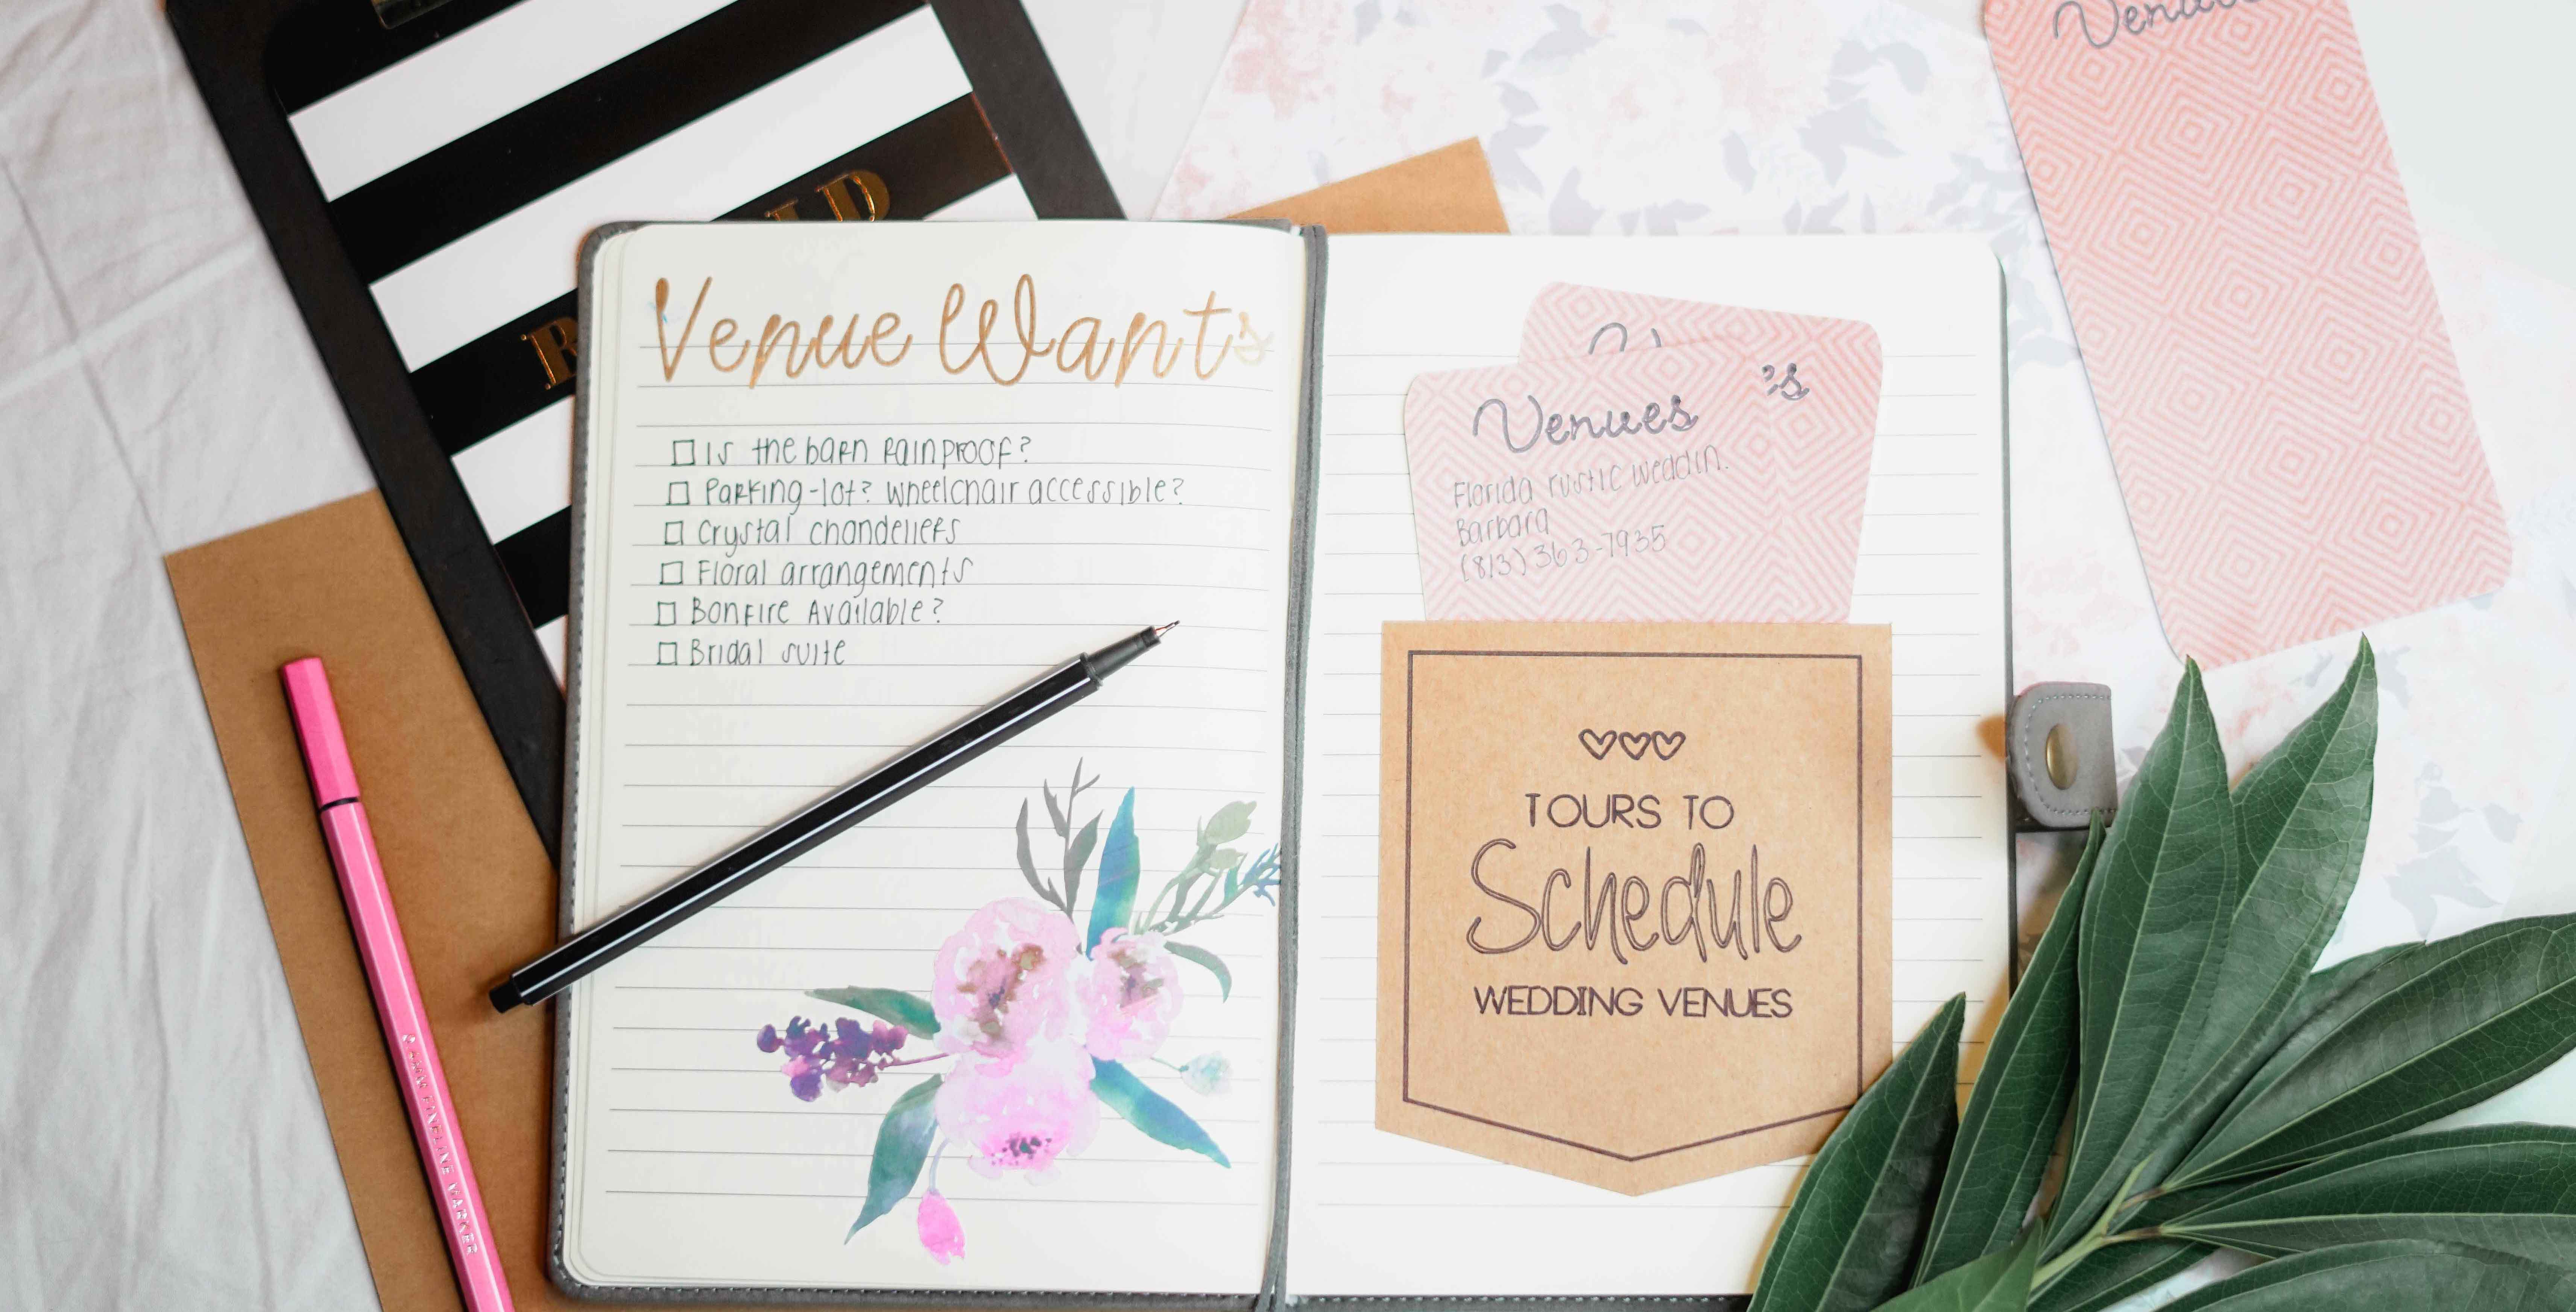 Venue Wants
Is the barn rainproof?
Parking-lot? wheelchair accessible?
Crystal chandeliers
Floral arrangements
Bonfire Available?
Bridal suite
Venues
's
Florida rustic weddin.
Barbara
(813) 363-7935
TOURS TO
Schedule
WEDDING VENUES